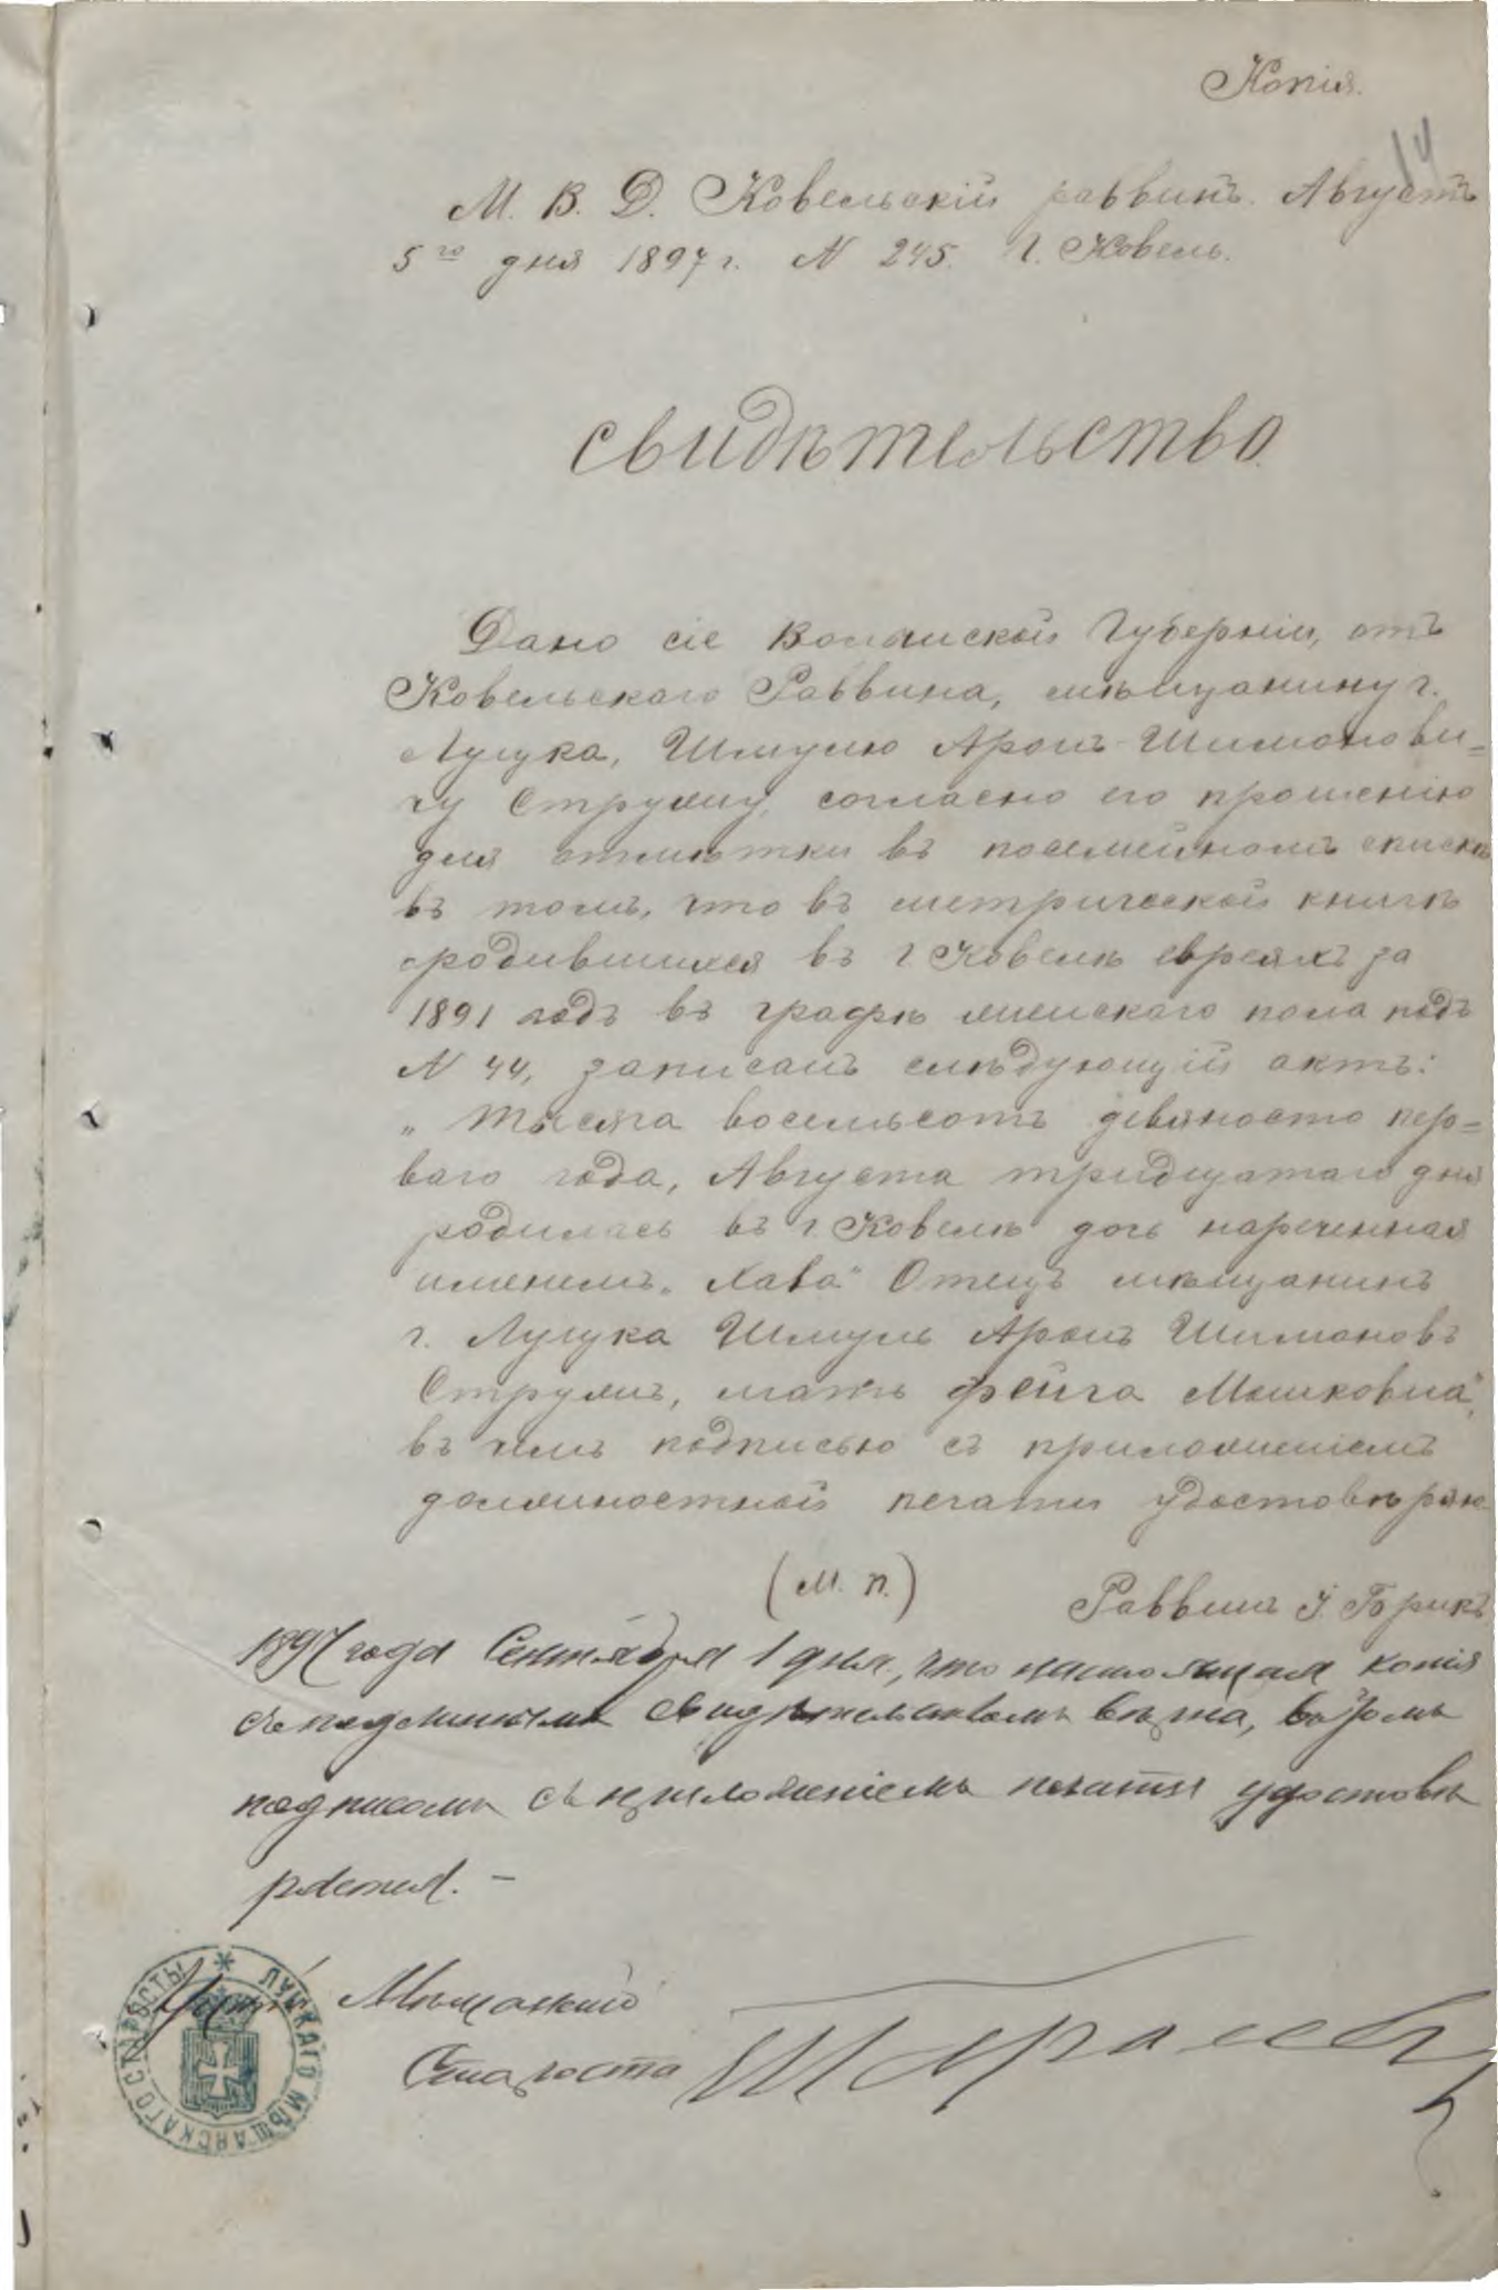 Копія.
14
М. В. Д. Ковельскій раввинъ. Августъ
5го дня 1897 г. N 245. Г. Ковель.
Свидѣтельство.
Дано сіе Волынской Губерніи, отъ
Ковельскаго Раввина, мѣщанину г.
Луцка, Шмулю Аронъ Шимонови=
чу Струлицу, согласно его прошенію
для отмѣтки въ посемейномъ спискѣ
въ томъ, что въ метрической книгѣ
родившихся въ г. Ковелѣ евреяхъ за
1891 годъ въ графѣ женскаго пола подъ
N 44, записанъ слѣдующій актъ:
„Тысяча восемьсотъ девяносто пер=
ваго года, Августа тридцатаго дня
родилась въ г. Ковелѣ дочь нареченная
именемъ „Хава" Отецъ мѣщанинъ
г. Луцка Шмуль Аронъ Шимоновъ
мать Фейга Мошковна",
въ чемъ подписью съ приложеніемъ
должностной печати удостовѣряю.
(М. П.) Раввинъ І. Брикъ
1897 года Сентября 1 дня, что настоящая копія
съ подлиннымъ свидѣтельствомъ вѣрна, въ томъ
подписомъ съ приложеніемъ печати удостовѣ
ряется. –
Мѣщанскій
Староста
ЛУЦКАГО МѢЩАНСКАГО СТАРОСТЫ